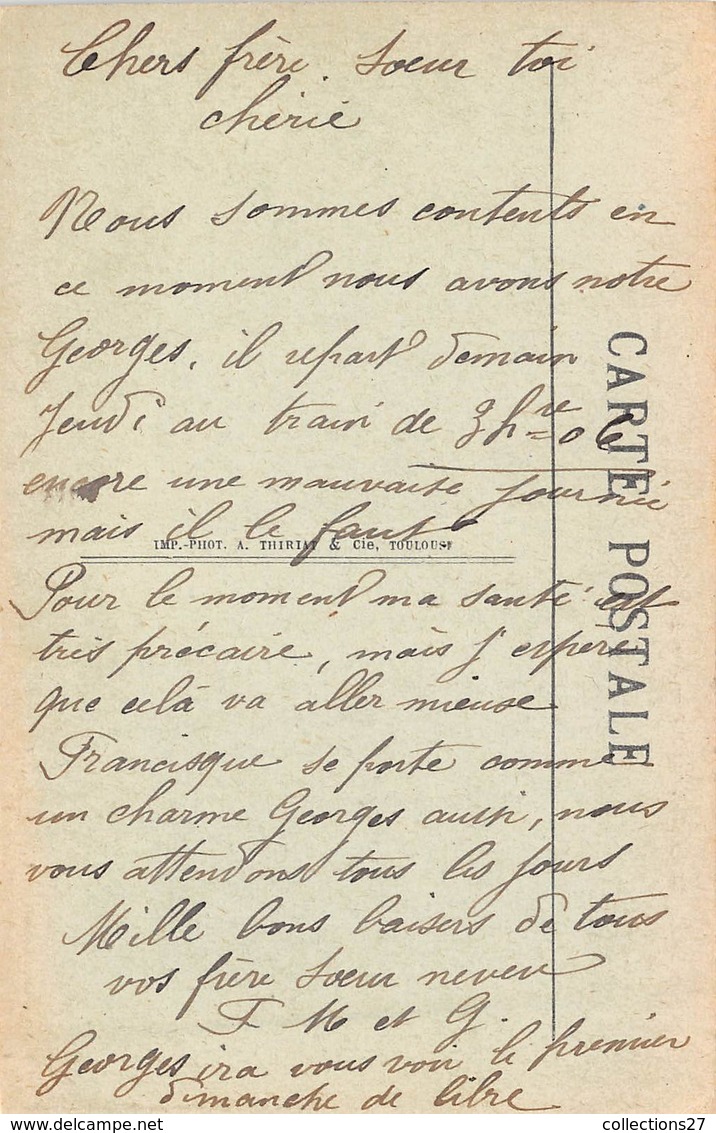 Chers frère. Soeur toi
chérie
Nous sommes contents en
ce moment nous avons notre
Georges, il repart demain
Jeudi au train de 3 hre 06
encore une mauvaise journée
mais il le faut
IMP.-PHOT. A. THIRIAT & Cie, TOULOUSE
Pour le moment ma santé est
très précaire, mais j'espère
que celà va aller mieuse
Francisque se porte comme
un charme Georges aussi, nous
vous attendons tous les jours
Mille bons baisers de tous
vos frère soeur neveu
F M et G.
Georges ira vous voir le premier
dimanche de libre
CARTE POSTALE
collections27